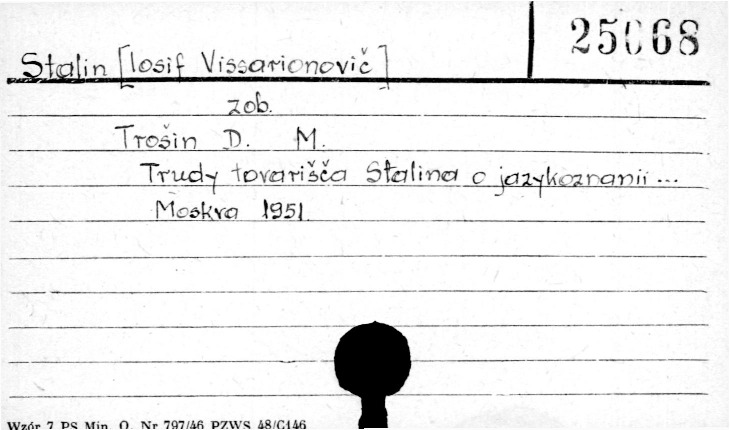 25068
Stalin [Iosif Vissarionovič]
zob.
Trošin D. M.
Trudy tovarišča Stalina o jazykoznanii ...
Moskva 1951.
Wzór 7 PS Min. O. Nr 797/46 PZWS 48/C146